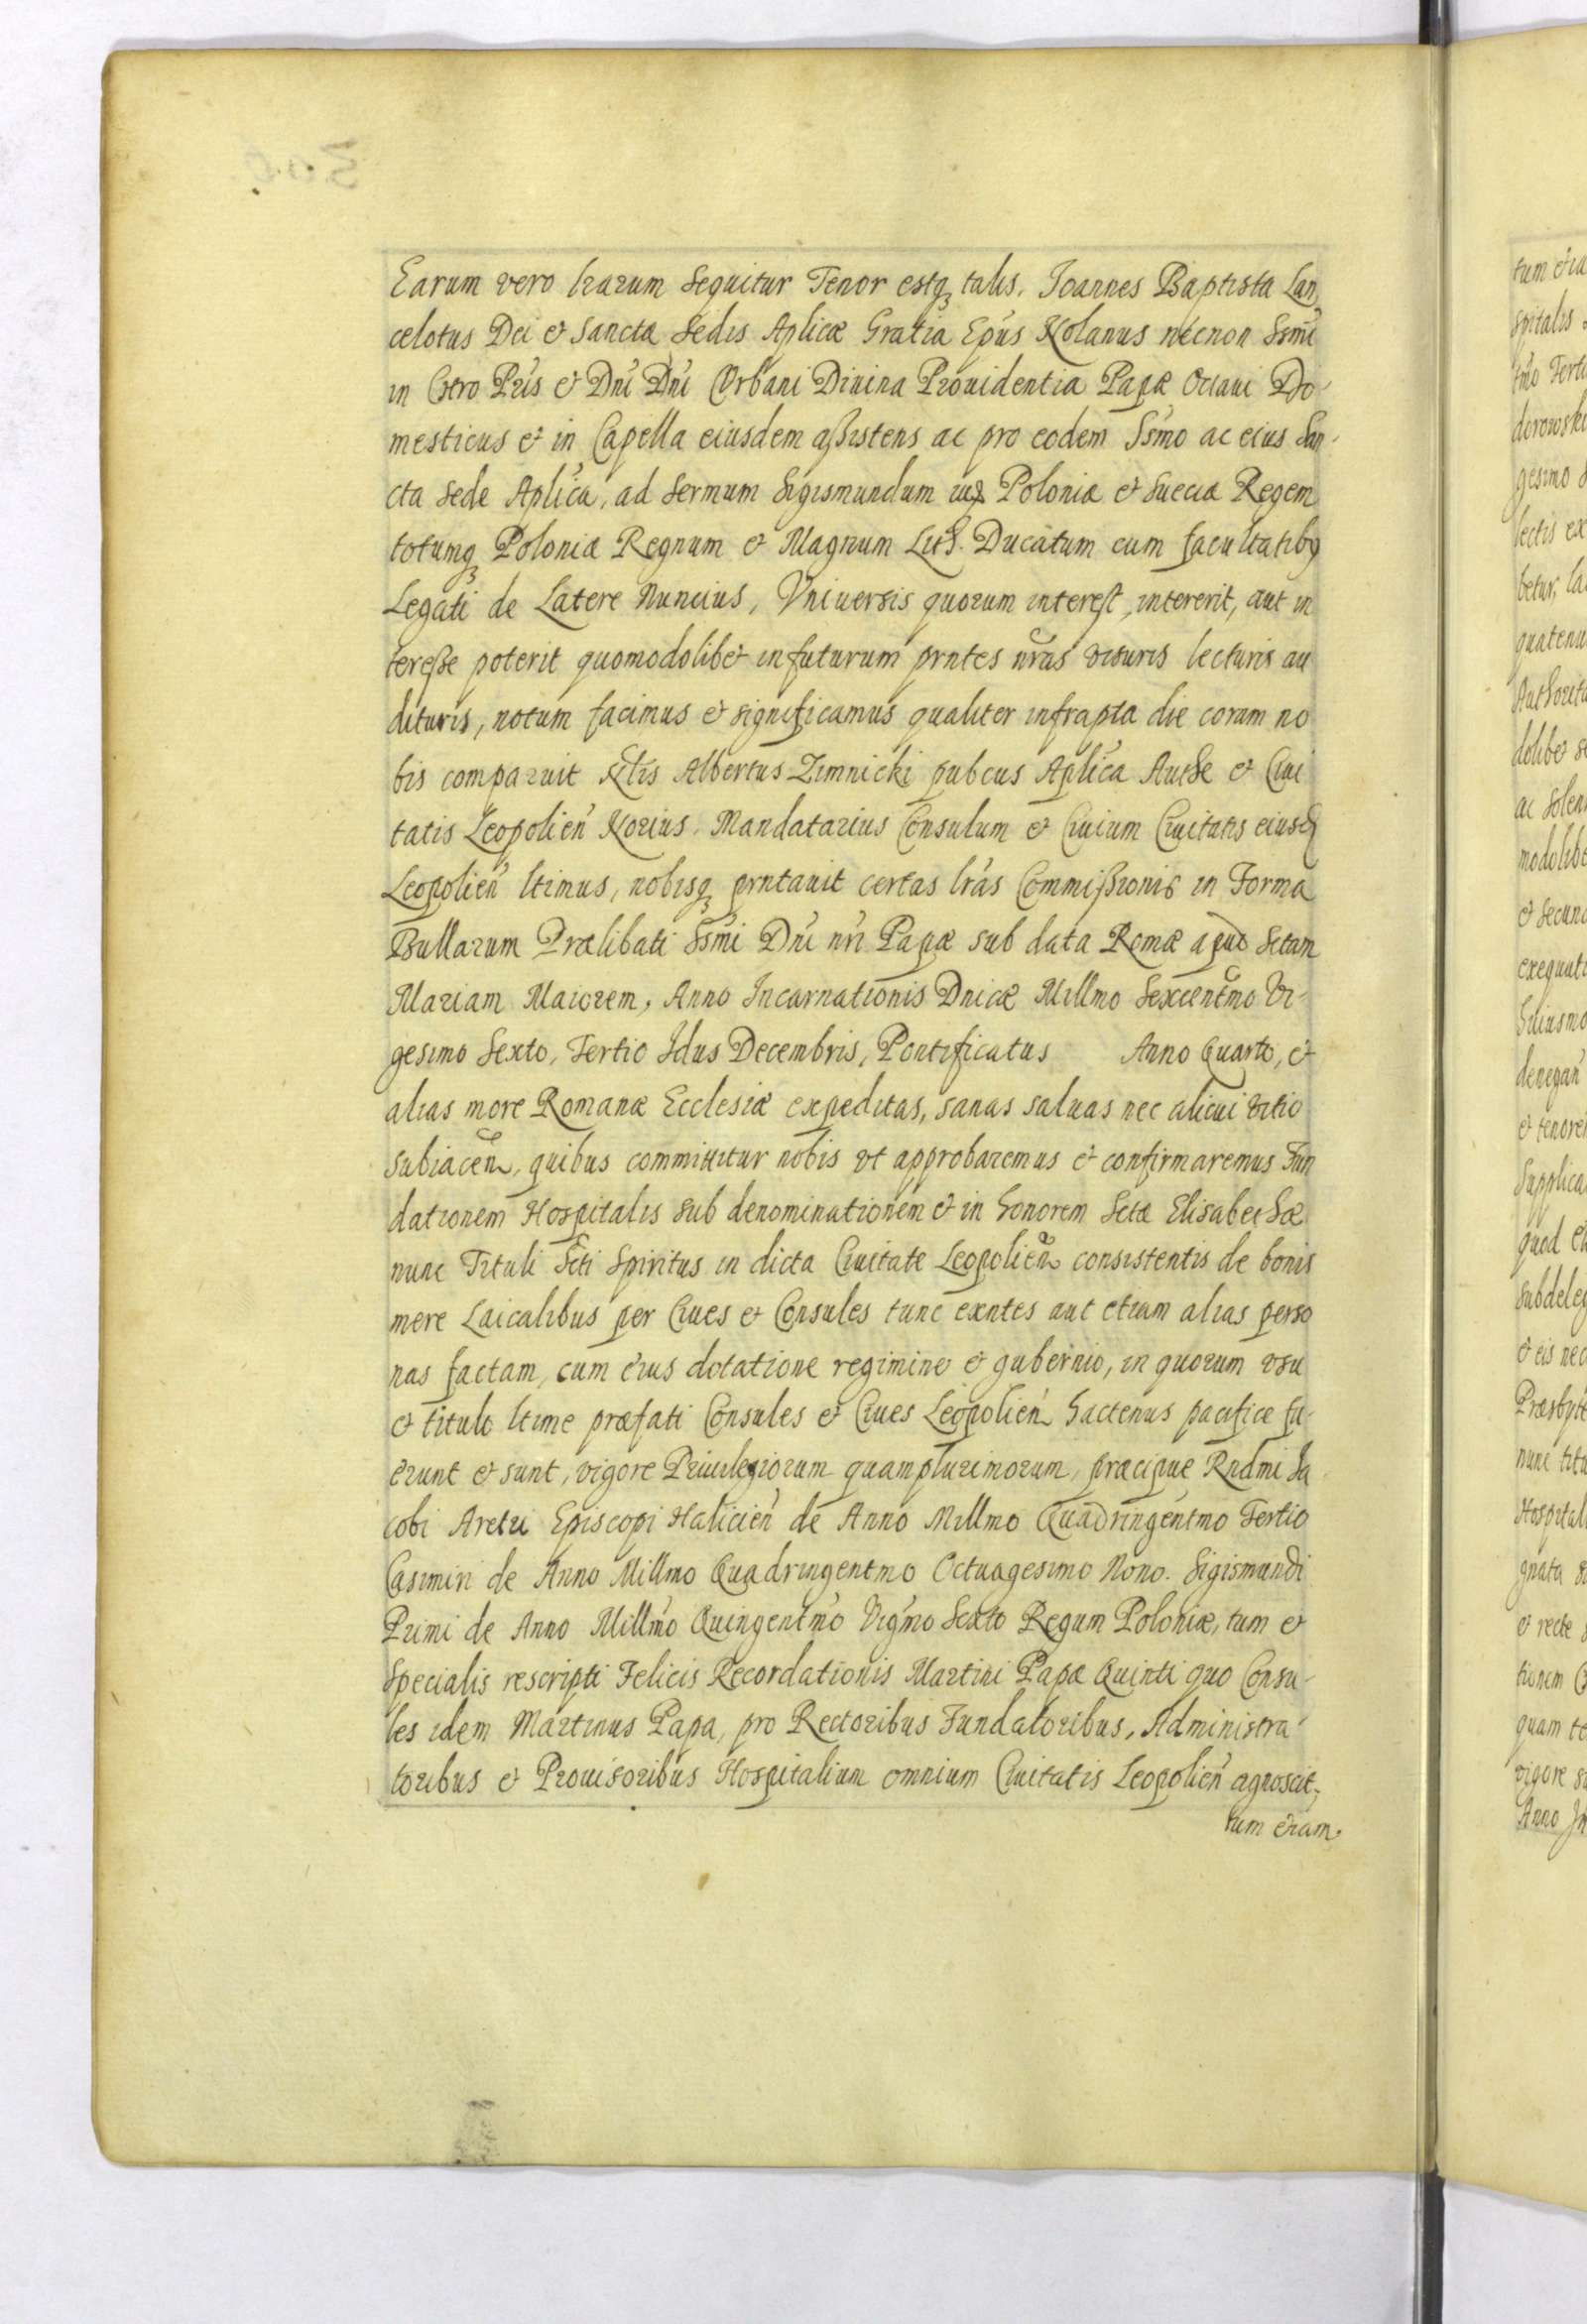 Earum vero lrarum Sequitur Tenor estq₃ talis. Joannes Baptista Lan,
celotus Dei & Sanctæ Sedis Aplicæ Gratia Epús Nolanus nécnon Ssm̃i
in Chro Prís & Dnĩ Dnĩ Vrbani Diuina Prouidentia Papæ Octaui Do-
mesticus & in Capella eiusdem aßistens ac pro eodem Ssm̃o ac eius San-
cta Sede Aplíca, ad Sermum Sigismundum Poloniæ & Sueciæ Regem
totumq₃ Poloniæ Regnum & Magnum Lith. Ducatum cum facultatibꝰ
Legati de Latere Nuncius, Vniuersis quorum interest, intererit, aut in
tereße poterit quomodolibet in futurum prntes nrãs visuris lecturis au
dituris, notum facimus & significamus qualiter infrapta die coram no
bis comparuit Albertus Zimnicki pubcus Aplíca Authe & Ciui
tatis Leopolień Norius. Mandatarius Consulum & Ciuium Ciuitatis eiusd
Leopolień ltimus, nobisq₃ prntauit certas lrás Commißionis in Forma
Bullarum Prælibati Ssm̃i Dnĩ nrĩ Papæ sub data Romæ apud Sctam
Mariam Maiorem, Anno Incarnationis Dnicæ Millmo Sexcentm̃o Vi-
gesimo Sexto, Tertio Idus Decembris, Pontificatus Anno Quarto, &
alias more Romanæ Ecclesiæ expeditas, sanas saluas nec alicui vitio
subiaceñ, quibus committitur nobis vt approbaremus & confirmaremus Fun
dationem Hospitalis sub denominationem & in honorem Sctæ Elisabethæ
nunc Tituli Scti Spiritus in dicta Ciuitate Leopolień consistentis de bonis
mere Laicalibus per Ciues & Consules tunc exntes aut etiam alias perso
nas factam, cum eius dotatione regimine & gubernio, in quorum vsu
& titulo ltime præfati Consules & Ciues Leopolień hactenus pacificæ fu-
erunt & sunt, vigore Priuilegiorum quamplurimorum, præcipue Rndmi Ja
cobi Aretu Episcopi Halicień de Anno Millmo Quadringéntmo Tertio
Casimiri de Anno Millmo Quadringentmo Octuagesimo Nono. Sigismundi
Primi de Anno Millm̃o Quingentm̃o Vigm̃o Sexto Regum Poloniæ, tum &
Specialis rescripti Felicis Recordationis Martini Papæ Quinti quo Consu-
les idem Martinus Papa, pro Rectoribus Fundatoribus, Administra-
toribus & Prouisoribus Hospitalium omnium Ciuitatis Leopolień agnoscit,
tum etiam